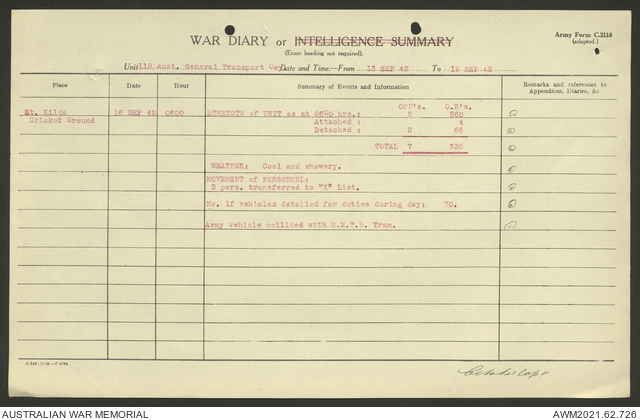 WAR DIARY or INTELLIGENCE SUMMARY
(Erase heading not required).
Army Form C.2118
(adapted.)
Unit 118 Aust. General Transport Coy Date and Time.—From 13 SEP 42 To 19 SEP 42
Place Date Hour Summary of Events and Information Remarks and references to
Appendices, Diaries, &c.
OFF's. O.R's.
St. Kilda 16 SEP 42 0600 STRENGTH of UNIT as at 0600 hrs.: 5 260
Cricket Ground Attached : 4
Detached : 2 66
TOTAL 7 330
WEATHER: Cool and showery.
MOVEMENT of PERSONNEL:
2 pers. transferred to "X" List.
No. if vehicles detailed for duties during day: 70.
Army vehicle collided with M.M.T.B. Tram.
Capt.
AUSTRALIAN WAR MEMORIAL AWM2021.62.726